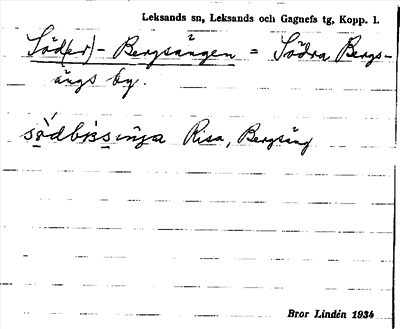 Leksands sn, Leksands och Gagnefs tg, Kopp. l.
Söd(er)-Bergsängen = Södra Bergs-
ängs by.
Risa, Bergsäng
Bror Lindén 1934